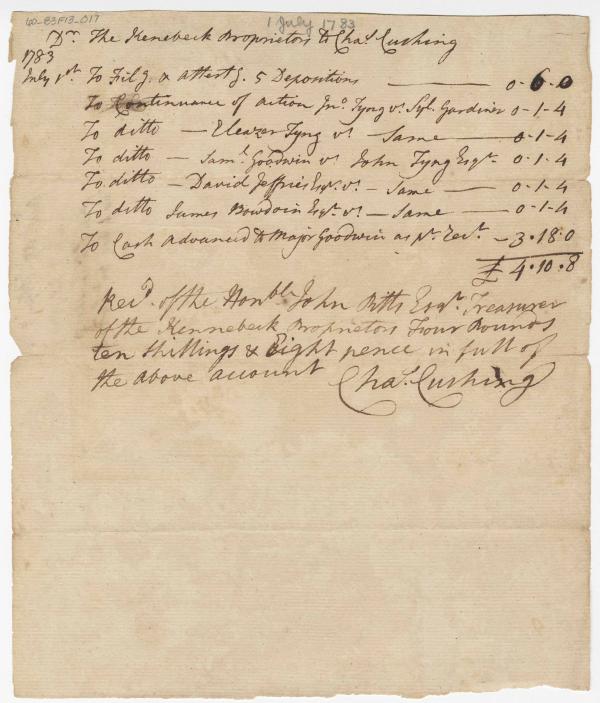 60_83F13_017
1 July 1783
Dr. The Kenebeck Proprietors to Chas. Cushing
1783
July 1st. To Filg. & attestg. 5 Depositions — 0-6-0
To Continuance of Action Jno. Tyng vs. Syl. Gardiner 0-1-4
To ditto — Eleazer Tyng vs. — Same — 0-1-4
To ditto — Saml. Goodwin vs. John Tyng Esqr. 0-1-4
To ditto — David Jeffries Esqr. vs. — Same — 0-1-4
To ditto James Bowdoin Esqr. vs. — Same — 0-1-4
To Cash advanced to Major Goodwin as Pr. Rect. — 3.18.0
£ 4.10.8
Recd. of the Honble John Pitts Esqr. Treasurer
of the Kennebeck Proprietors Four Pounds
ten shillings & Eight pence in full of
the above account Chas. Cushing